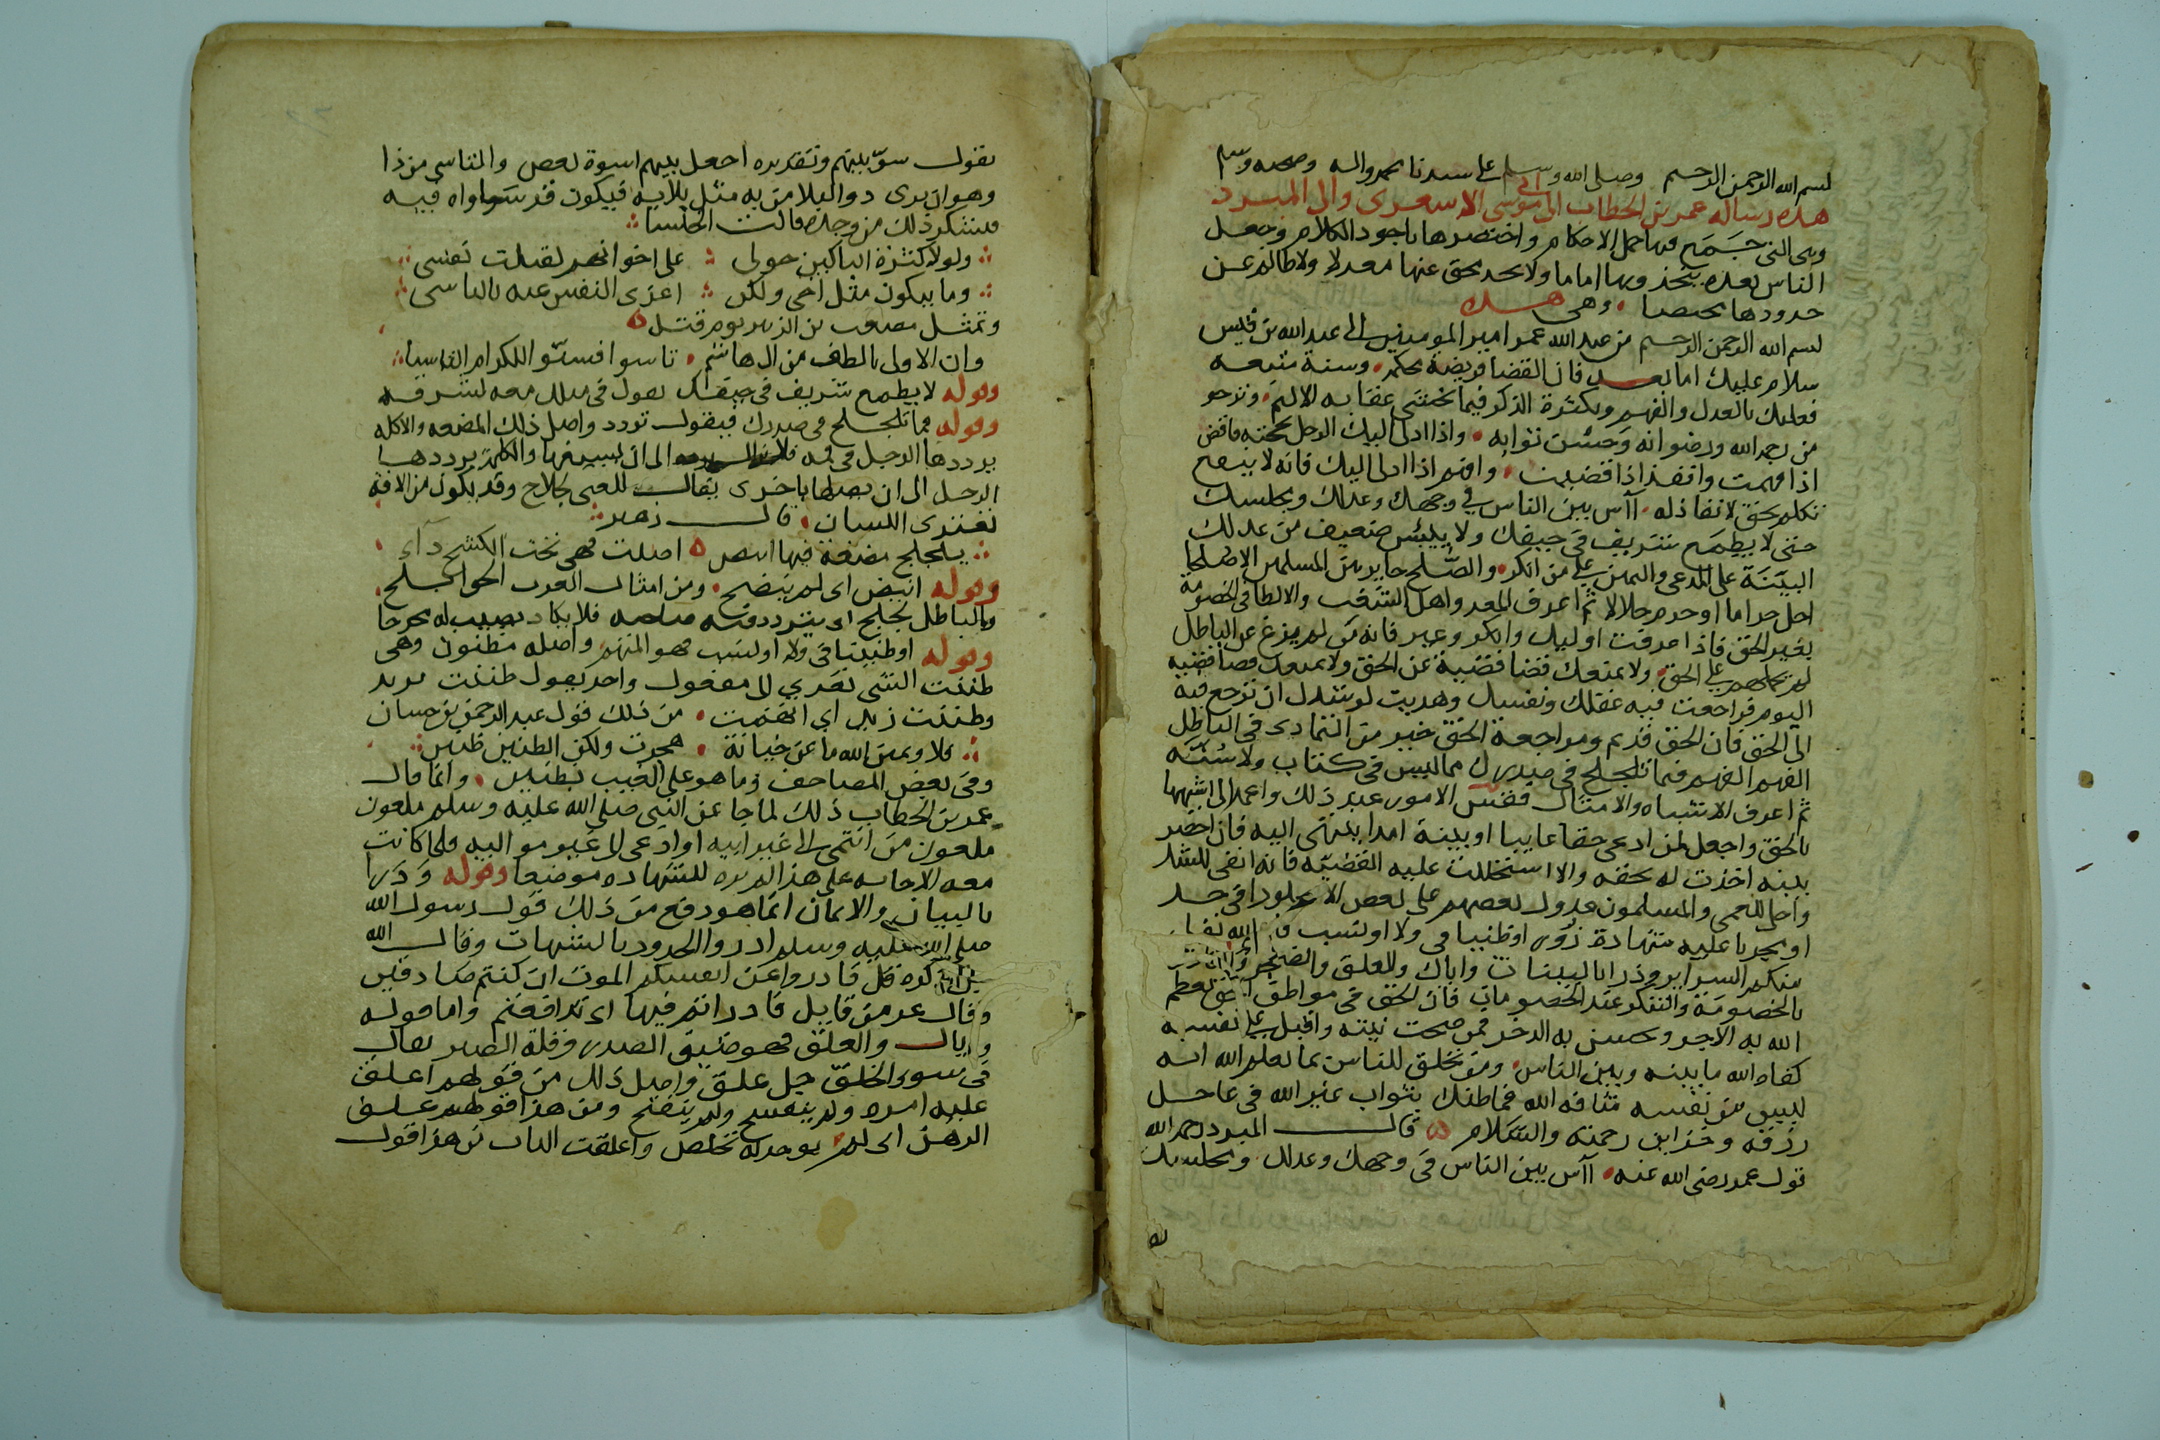 بسم الله الرحمن الرحيم وصلى الله وسلم على سيدنا محمد واله وصحبه وسلم
هذه رسالة عمر بن الخطاب الى ابي موسى الاشعري
وهي التي جمع فيها جمل الاحكام واختصرها باجود الكلام وجعل
الناس بعده يتخذونها اماما ولا يجد محق عنها معدلا ولا ظالم عن
حدودها محيصا وهي هذه
بسم الله الرحمن الرحيم من عبد الله عمر امير المومنين الى عبد الله بن قيس
سلام عليك اما بعد فان القضا فريضة محكمه وسنة متبعه
فعليك بالعدل والفهم وبكثرة الذكر فيما تخشى عقابه الاليم وترجو
من رحمة الله ورضوانه وحسن ثوابه واذا ادلى اليك الرجل بحجته فاقض
اذا فهمت وانفذ اذا قضيت وافهم اذا ادلى اليك فانه لا ينفع
تكلم بحق لا نفاذ له آآس بين الناس في وجهك وعدلك ومجلسك
حتى لا يطمع شريف في حيفك ولا ييئس ضعيف من عدلك
البينة على المدعي واليمين على من انكر والصلح جايز بين المسلمين الا صلحا
احل حراما او حرم حلالا
لم يحملهم على الحق ولا يمنعك قضا قضيته
اليوم فراجعت فيه عقلك ونفسك وهديت لرشدك ان ترجع فيه
الى الحق فان الحق قديم ومراجعة الحق خير من التمادي في الباطل
الفهم الفهم فيما تلجلج في صدرك مما ليس في كتاب ولا سنة
ثم اعرف الاشباه والامثال فقس الامور عند ذلك واعمد الى اشبهها
بالحق واجعل لمن ادعى حقا غايبا او بينة امدا ينتهي اليه فان احضر
بينه اخذت له بحقه والا استحللت عليه القضيه فانه انفى للشك
واجلى للعمى والمسلمون عدول بعضهم على بعض الا مجلودا في حد
او مجربا عليه شهادة زور او ظنينا في ولا او نسب
منكم السراير ودرا بالبينات واياك والعلق والضجر
بالخصومة والتنكر عند الخصومات فان الحق في مواطن الحق يعظم
الله به الاجر ويحسن به الذخر فمن صحت نيته واقبل على نفسه
كفاه الله ما بينه وبين الناس ومن تخلق للناس بما يعلم الله انه
ليس من نفسه شانه الله فما ظنك بثواب غير الله في عاجل
رزقه وخزاين رحمته والسلام قال المبرد رحمه الله
قول عمر رضي الله عنه آآس بين الناس في وجهك وعدلك ومجلسك
يقول سو بينهم وتقديره اجعل بينهم اسوة بعض والتاسي من ذا
وهو ان يرى ذو البلا من به مثل بلايه فيكون قد ساواه فيه
فيسكن ذلك من وجده قالت الخنسا
ولولا كثرة الباكين حولي على اخوانهم لقتلت نفسي
وما يبكون مثل اخي ولكن اعزي النفس عنه بالتاسي
وتمثل مصعب بن الزبير يوم قتل
وان الاولى بالطف من ال هاشم تاسوا فسنوا للكرام التاسيا
وقوله لا يطمع شريف في حيفك يقول في ميلك معه لشرفه
وقوله فيما تلجلج في صدرك فيقول تردد واصل ذلك المضغه والاكله
يرددها الرجل في فيه الى ان يسيغها والكلمة يرددها
الرجل الى ان يصلها باخرى يقال للعيي لجلاج وقد يكون من الافة
تعتري اللسان قال زهير
يلجلج مضغة فيها انيض اصلت فهي تحت الكشح داء
وقوله انيض اى لم ينضج ومن امثال العرب الحق ابلج
والباطل لجلج اى يتردد فيه صاحبه فلا يكاد يصيب له مخرجا
وقوله او ظنينا في ولا او نسب فهو المتهم واصله مظنون وهي
ظننت التي تعدي الى مفعول واحد يقول ظننت بزيد
وظننت زيدا اى اتهمت من ذلك قول عبد الرحمن بن حسان
فلا ويمين الله ما عن خيانة هجرت ولكن الظنين ظنين
وفي بعض المصاحف وما هو على الغيب بظنين وانما قال
عمر بن الخطاب ذلك لما جا عن النبي صلى الله عليه وسلم ملعون
ملعون من انتمى الى غير ابيه او ادعى الى غير مواليه فلما كانت
معه الاجابه على هذا لم يره للشهاده موضعا وقوله ودرا
بالبينات والايمان انما هو دفع من ذلك قول رسول الله
صلى الله عليه وسلم ادروا الحدود بالشبهات وقال الله
قل فادروا عن انفسكم الموت ان كنتم صادقين
وقال عز من قايل فادراتم فيها اى تدافعتم واما قوله
واياك والعلق فهو ضيق الصدر وقلة الصبر يقال
في سوء الخلق رجل علق واصل ذلك من قولهم اغلق
عليه امره ولم ينفسح ولم ينفتح ومن هذا قولهم غلق
الرهن اى لم يوجد له تخلص واغلقت الباب من هذا قول